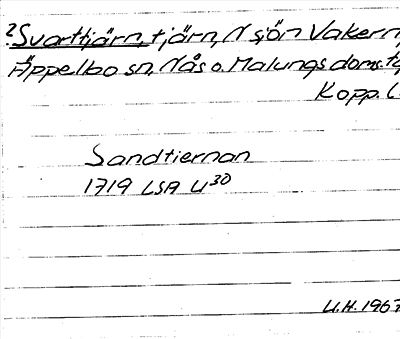 2 Svarttjärn, tjärn, N sjön Vakern,
Äppelbo sn, Nås o. Malungs doms.
Kopp. L
Sandtiernan
1719 LSA U30
U.H. 1967